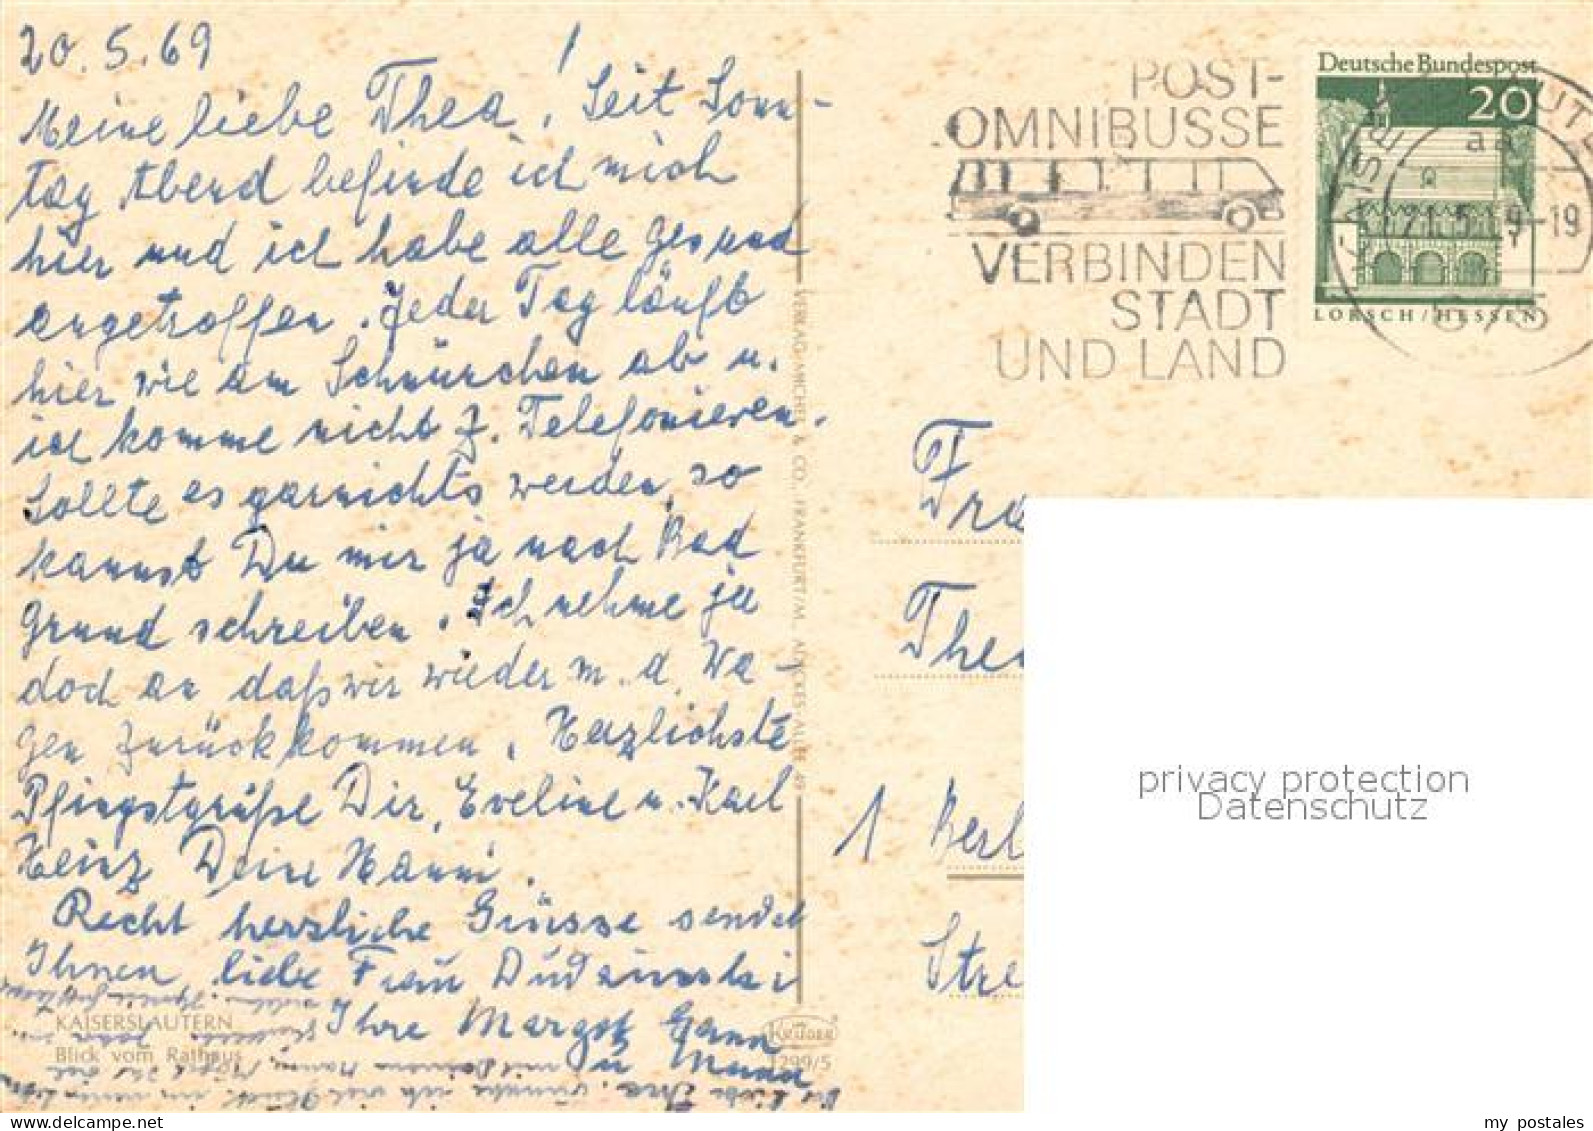 20.5.69
Meine liebe Thea! Seit Sonn-
tag Abend befinde ich mich
hier und ich habe alle gesund
angetroffen. Jeder Tag läuft
hier wie am Schnürchen ab u.
ich komme nicht z. Telefonieren.
Sollte es garnichts werden, so
kannst Du mir ja nach Bad
Grund schreiben. Ich nehme je
doch an daß wir wieder m. d. Wa-
gen zurückkommen. Herzlichste
Pfingstgrüße Dir, Eveline u. Karl
Heinz Deine Hanni.
Recht herzliche Grüsse sendet
Ihnen, liebe Frau
Ihre Margot
u Mann
KAISERSLAUTERN
Blick vom Rathaus
VERLAG MICHEL & CO., FRANKFURT/M. ADICKES-ALLEE 49
KRÜGER
1299/5
POST-
OMNIBUSSE
VERBINDEN
STADT
UND LAND
Deutsche Bundespost
20
LORSCH/HESSEN
aa
675
Fra
Thea
1 Berl
Stre
privacy protection
Datenschutz
my postales